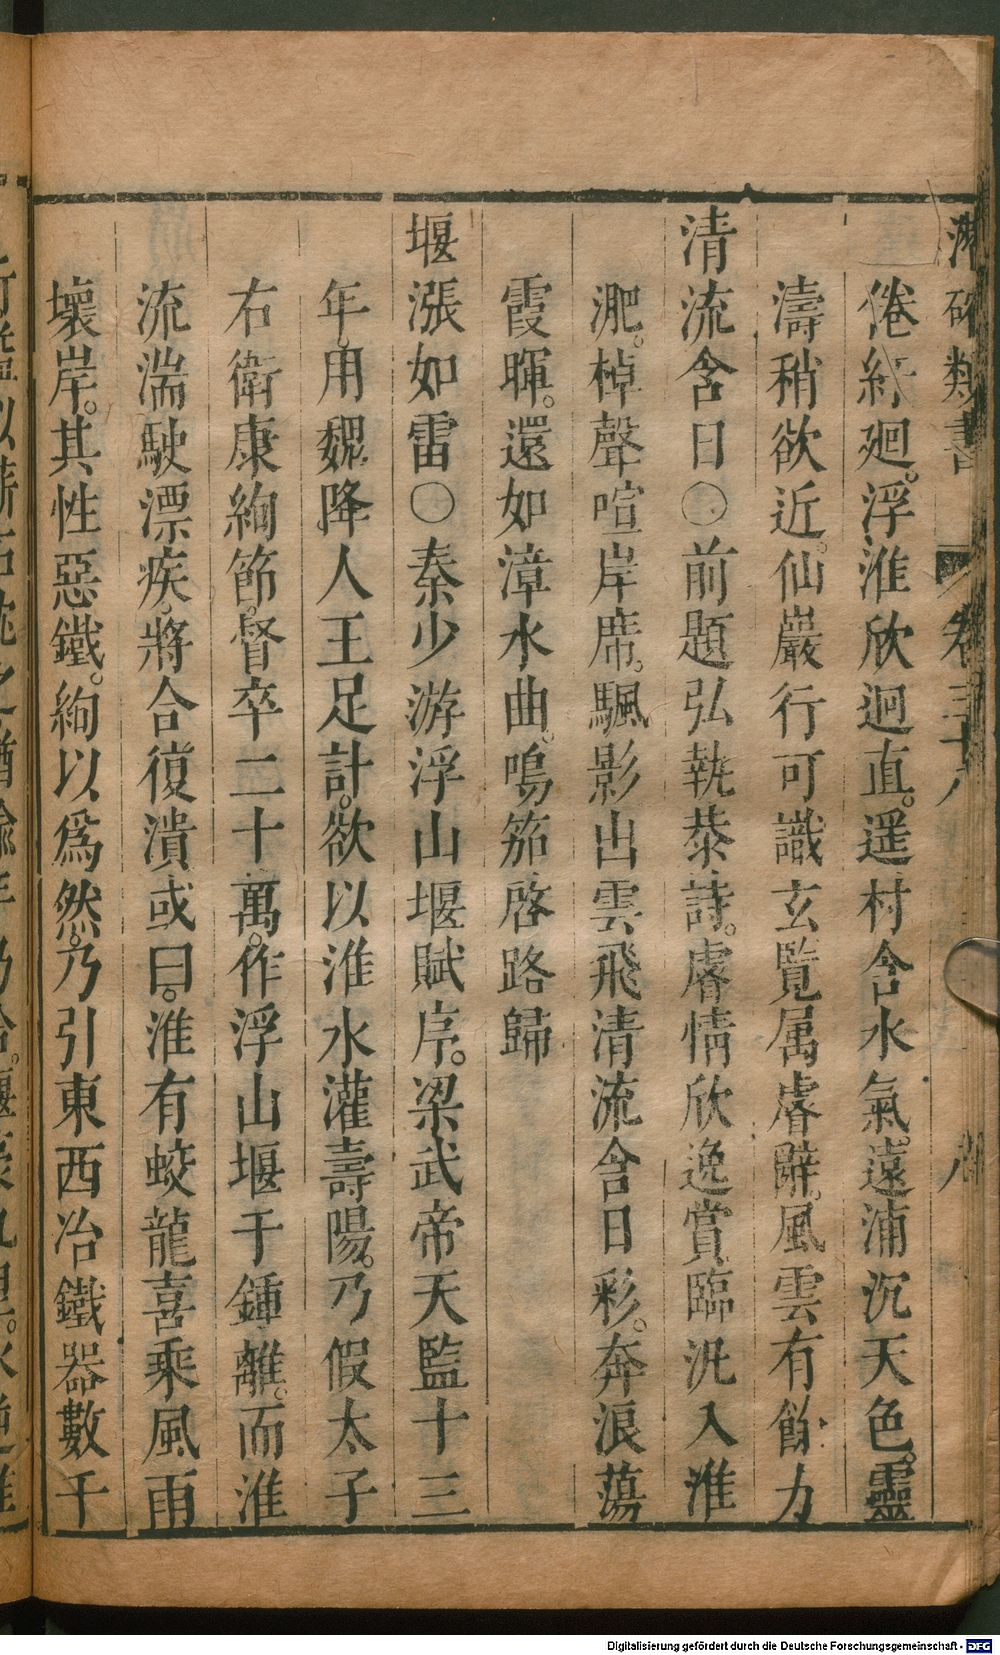 類書 卷三十八
倦紆廻。浮淮欣迴直。遥村含水氣。遠浦沉天色。靈
濤稍欲近。仙巖行可識玄覽属睿辭。風雲有餘力
清流含日〇前題弘執恭詩。睿情欣逸賞臨汎入淮
淝。棹聲喧岸席。颿影出雲飛清流含日彩。奔浪蕩
霞暉。還如漳水曲。鳴笳啓路歸
堰漲如雷〇秦少游浮山堰賦序。梁武帝天監十三
年。用魏降人王足計。欲以淮水灌壽陽。乃假太子
右衛康絢節。督卒二十萬。作浮山堰于鍾離。而淮
流湍駛漂疾。將合復潰或曰。淮有蛟龍喜乘風雨
壞岸。其性惡鐵。絢以爲然。乃引東西冶鐵器數千
Digitalisierung gefördert durch die Deutsche Forschungsgemeinschaft - DFG